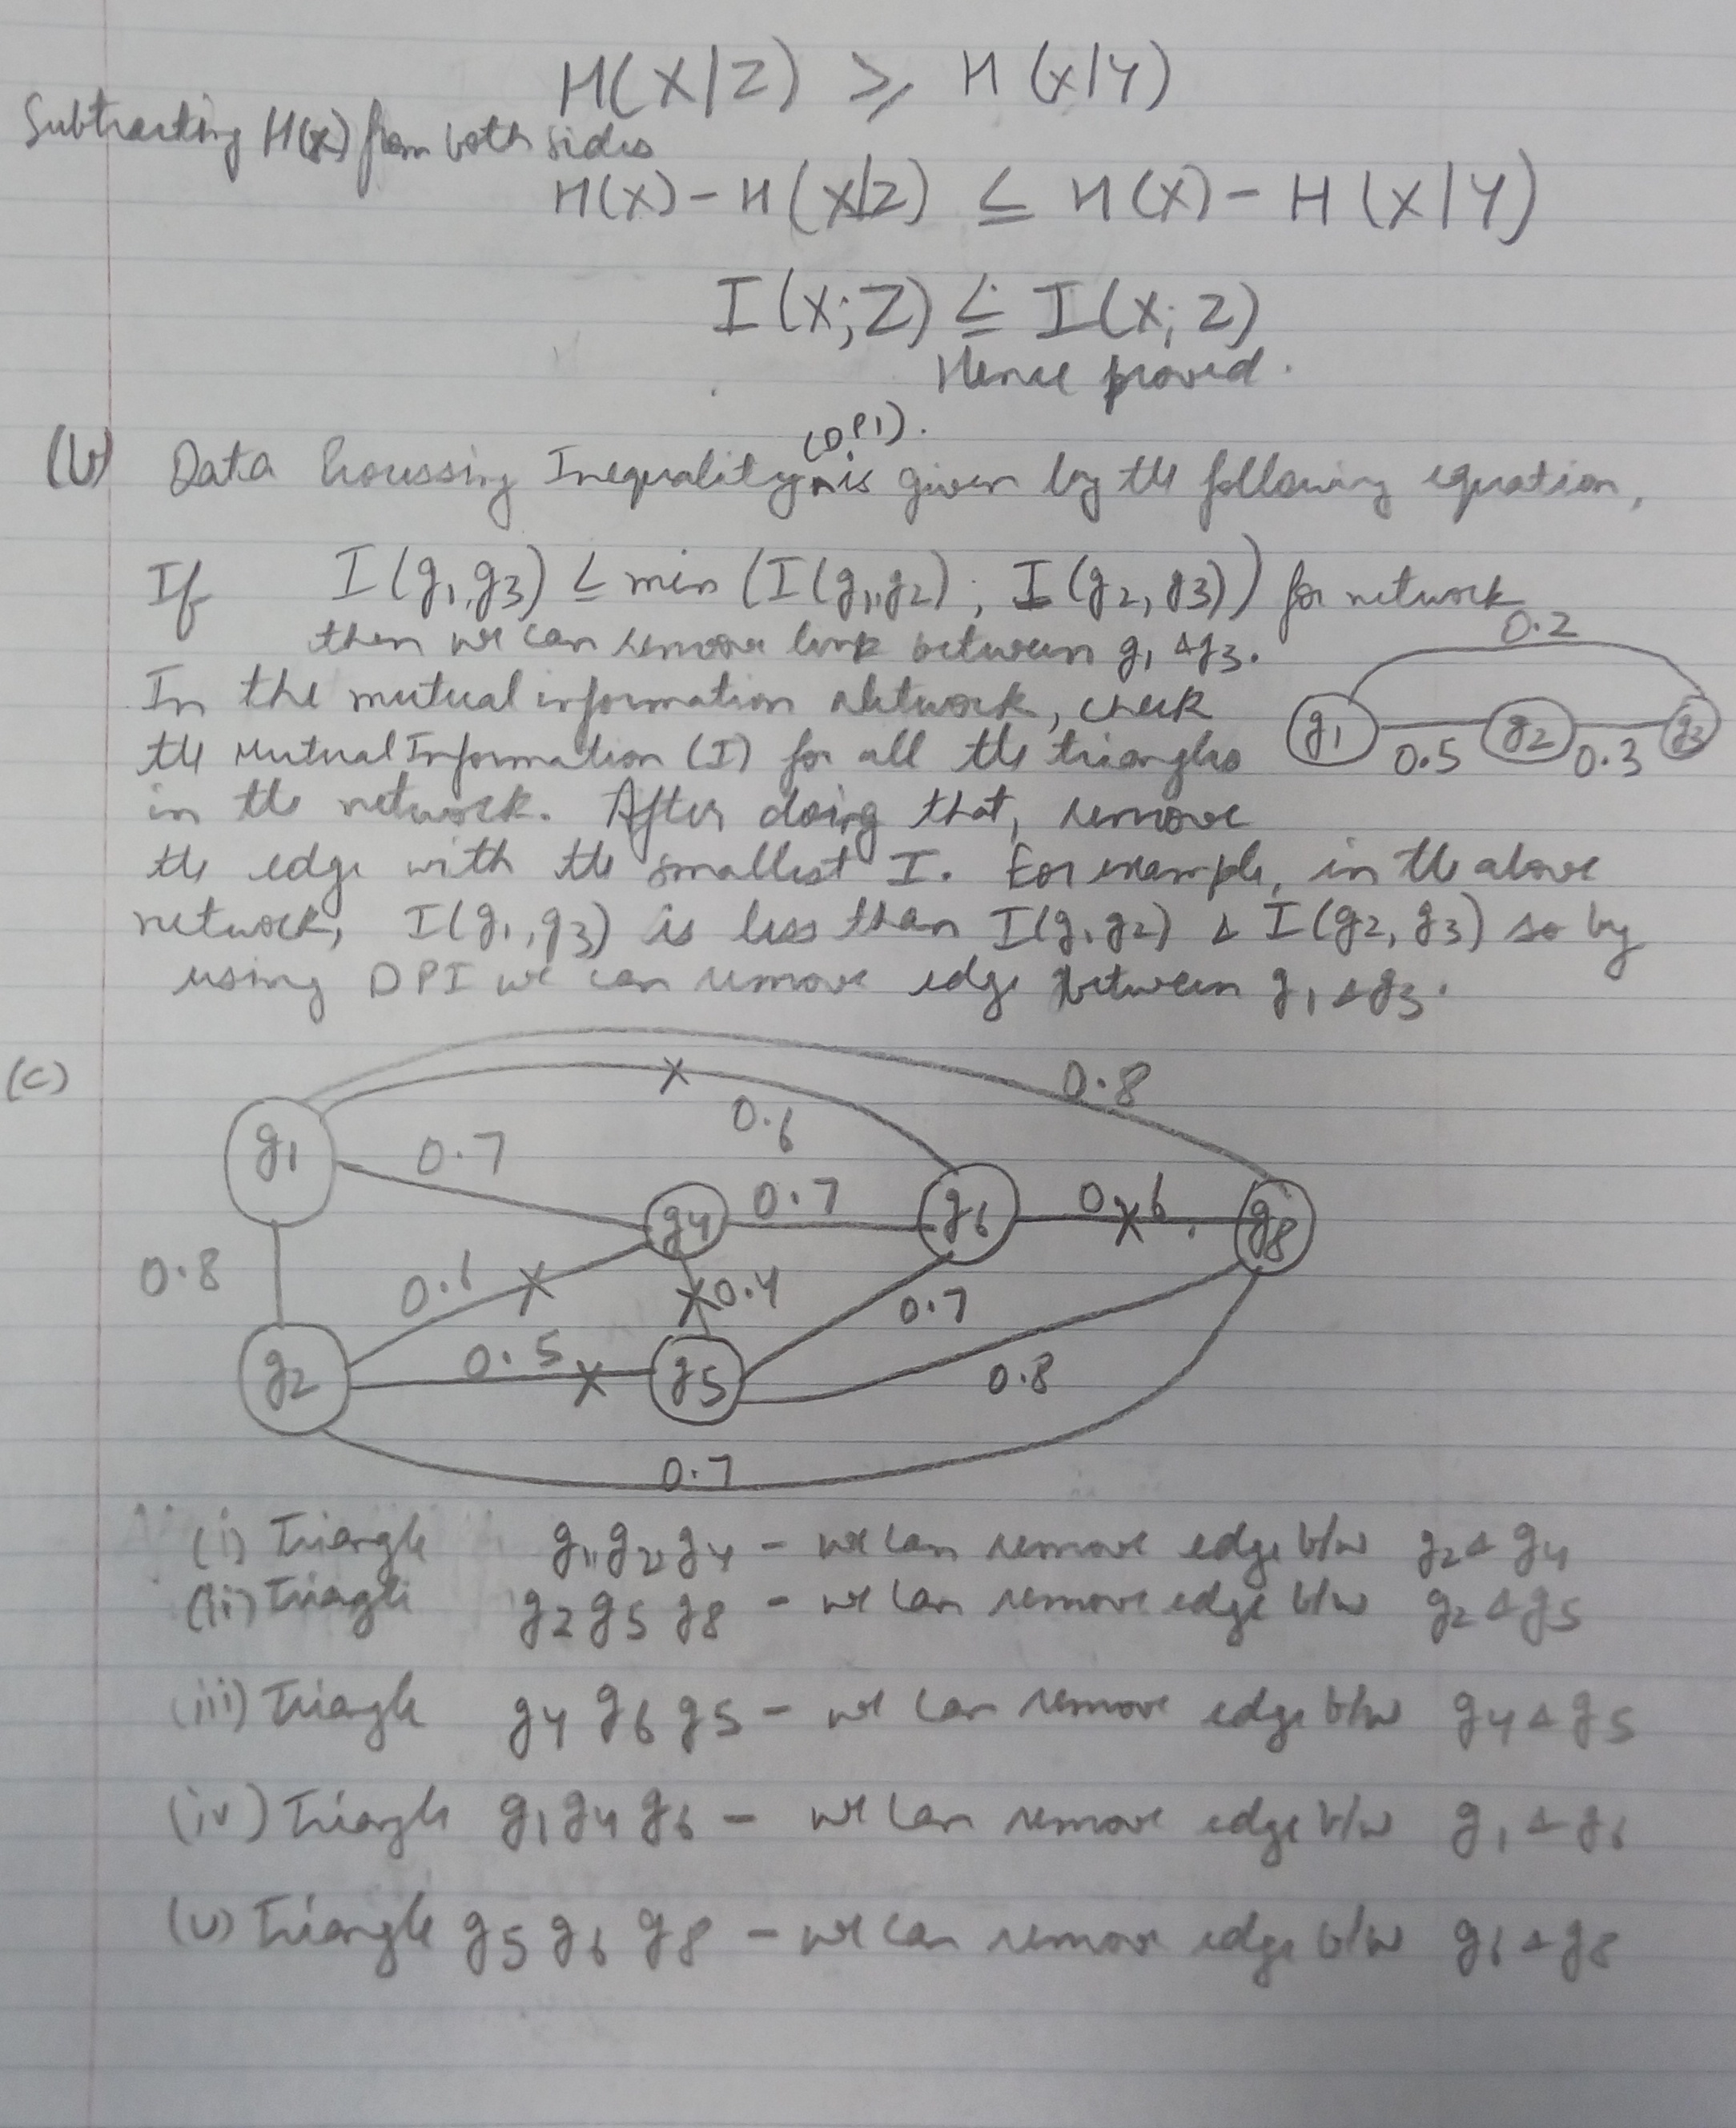 H(X/Z) ≥ H(X/Y)
Subtracting H(X) from both sides
H(X) - H(X/Z) ≤ H(X) - H(X/Y)
I(X;Z) ≤ I(X;Z)
Hence proved.
(b) Data Processing Inequality (DPI). is given by the following equation,
If I(g1,g3) ≤ min (I(g1,g2), I(g2,g3)) for network
then we can remove link between g1 & g3.
0.2
In the mutual information network, check
g1 g2 g3
the Mutual Information (I) for all the triangles
0.5 0.3
in the network. After doing that, remove
the edge with the smallest I. For example, in the above
network, I(g1,g3) is less than I(g1,g2) & I(g2,g3) so by
using DPI we can remove edge between g1 & g3.
(c)
0.8
x
0.6
g1 0.7
g4 0.7 g6 0.6 x g8
0.8
0.6 x
x 0.4
0.7
g2 0.5 x g5
0.8
0.7
(i) Triangle g1,g2,g4 - we can remove edge b/w g2 & g4
(ii) Triagle g2 g5 g8 - we can remove edge b/w g2 & g5
(iii) Triagle g4 g6 g5 - we can remove edge b/w g4 & g5
(iv) Triangle g1 g4 g6 - we can remove edge b/w g1 & g6
(v) Triangle g5 g6 g8 - we can remove edge b/w g6 & g8